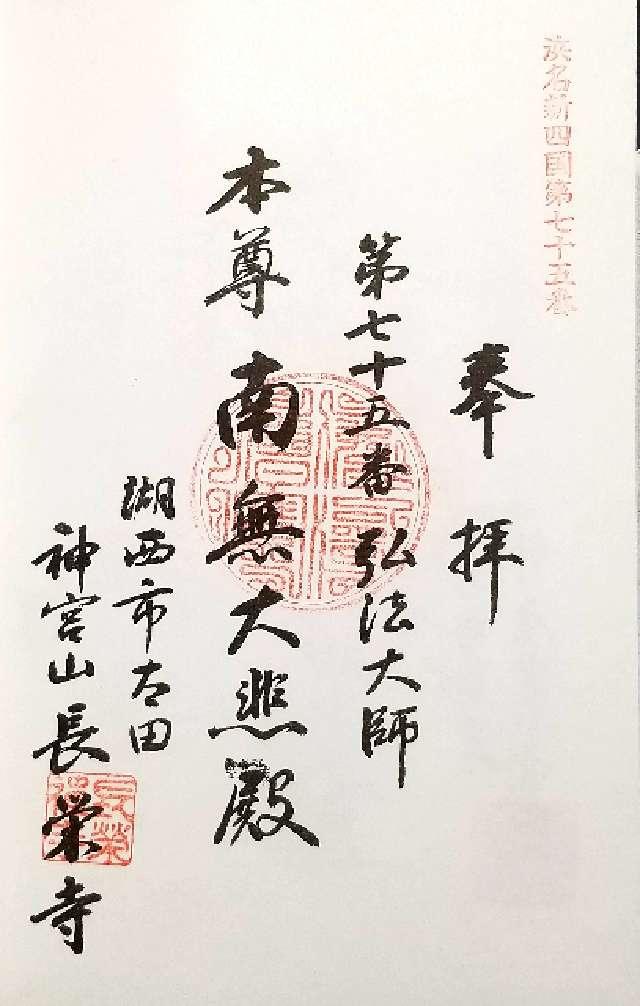 浜名新四國第七十五番
奉拝
第七十五番 弘法大師
本尊 南無大悲殿
湖西市太田
神宮山 長栄寺